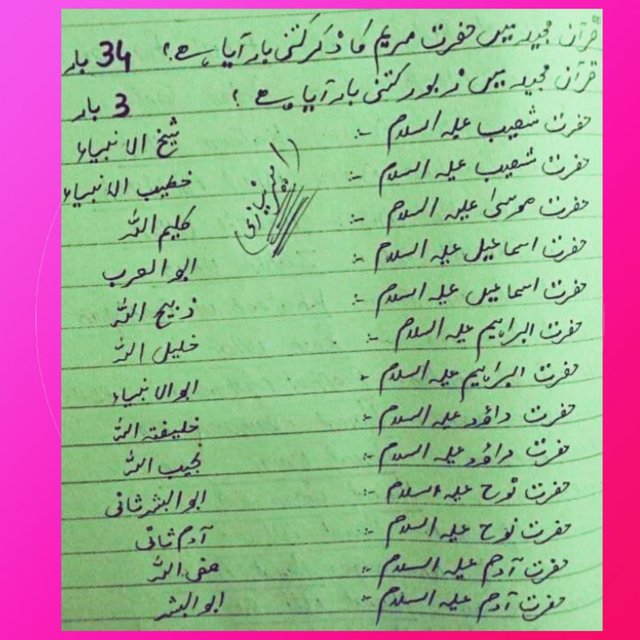 قرآن مجید میں حضرت مریم کا ذکر کتنی بار آیا ہے؟ 34 بار
قرآن مجید میں زبور کتنی بار آیا ہے؟ 3 بار
حضرت شعیب علیہ السلام :- شیخ الانبیاء
حضرت شعیب علیہ السلام :- خطیب الانبیاء
حضرت موسیٰ علیہ السلام :- کلیم اللہ
حضرت اسماعیل علیہ السلام :- ابوالعرب
حضرت اسماعیل علیہ السلام :- ذبیح اللہ
حضرت ابراہیم علیہ السلام :- خلیل اللہ
حضرت ابراہیم علیہ السلام :- ابوالانبیاء
حضرت داؤد علیہ السلام :- خلیفتہ اللہ
حضرت داؤد علیہ السلام :- نجیب اللہ
حضرت نوح علیہ السلام :- ابوالبشر ثانی
حضرت نوح علیہ السلام :- آدم ثانی
حضرت آدم علیہ السلام :- صفی اللہ
حضرت آدم علیہ السلام :- ابوالبشر